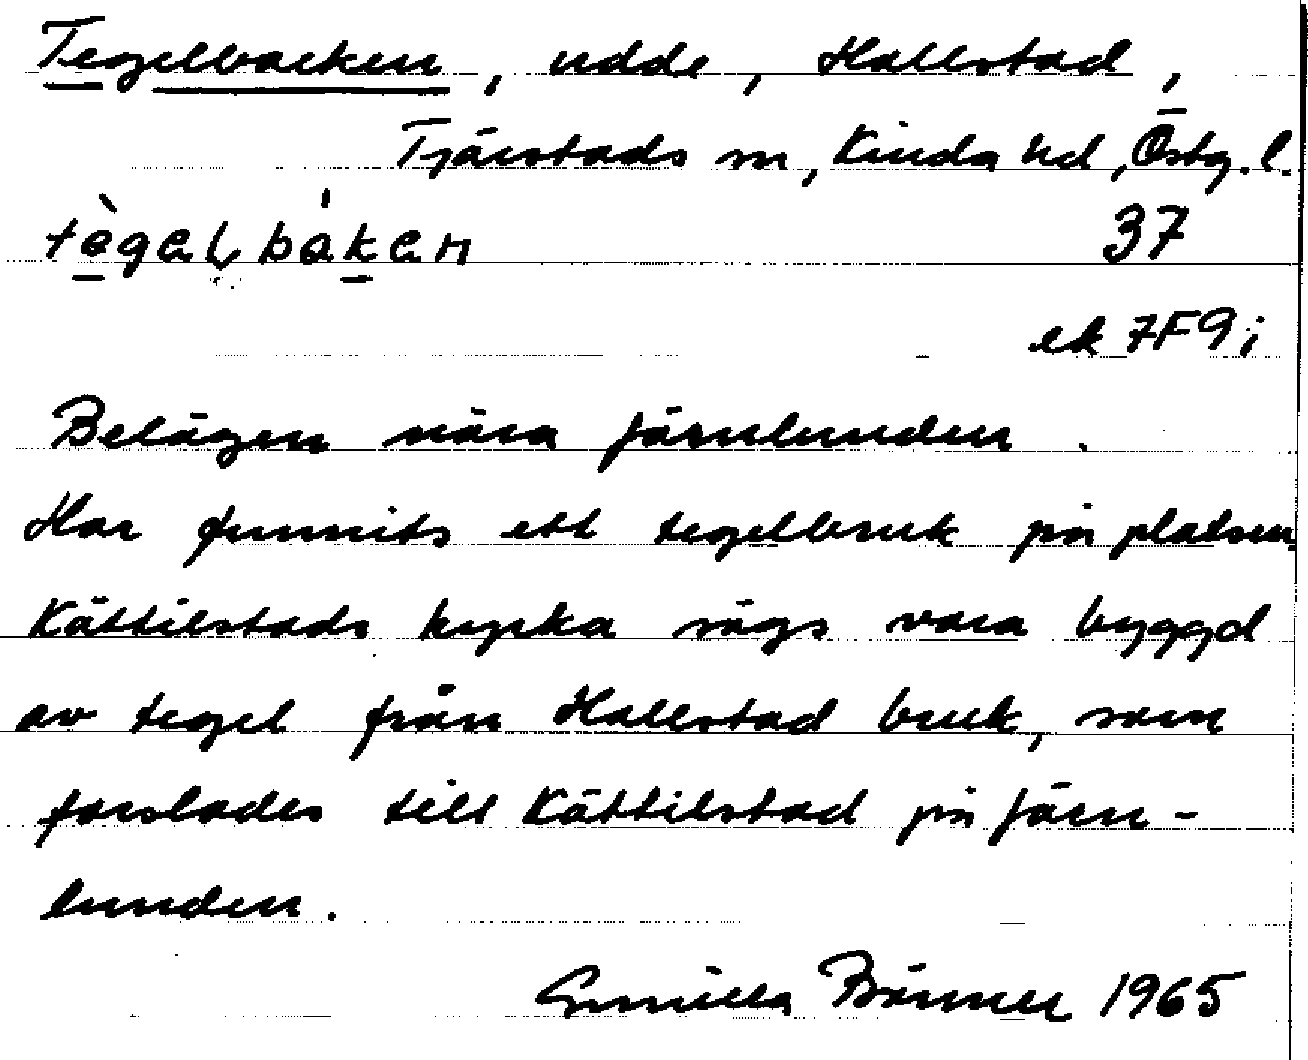 Tegelbacken, udde, Hallstad,
Tjärstads sn, Kinda hd, Östg. l.
tègəlbákən 37
ek 7F9i
Belägen nära Järnlunden.
Har funnits ett tegelbruk på platsen.
Kättilstads kyrka sägs vara byggd
av tegel från Hallstad bruk, som
forslades till Kättilstad på Järn-
lunden.
Gunilla Bänner 1965